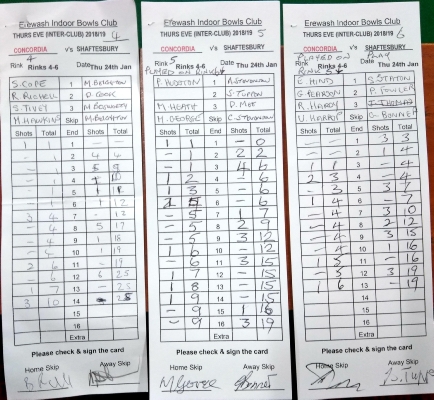 Erewash Indoor Bowls Club
THURS EVE (INTER-CLUB) 2018/19 4
CONCORDIA v's SHAFTESBURY
4
Rink Rinks 4-6 Date Thu 24th Jan
S. COPE 1
2 D. COOK
S. TIVEY 3
Skip M. BRIGHTON
Shots Total End Shots Total
1 1 1 - -
- - 2 4 4
- - 3
- - 4
- - 5
- - 6 1 12
3 4 7 - 12
- 4 8 5 17
- 4 9 1 18
- 4 10 1 19
2 6 11 - 19
- 6 12 6 25
1 7 13 - 25
3 10 14 - 25
15
16
Extra
Please check & sign the card
Home Skip Away Skip
Erewash Indoor Bowls Club
THURS EVE (INTER-CLUB) 2018/19 5
CONCORDIA v's SHAFTESBURY
5
Rink Rinks 4-6 Date Thu 24th Jan
PLAYED ON RINK
P. HUSTON 1 A. STEVENSON
2 S. TIPTON
M. HEATH 3
M. GEORGE Skip C. STEVENSON
Shots Total End Shots Total
1 1 1 - 0
- 1 2 2 2
- 1 3 4 6
1 2 4 - 6
1 3 5 - 6
5 6 - 6
- 5 7 1 7
- 5 8 2 9
- 5 9 3 12
1 6 10 - 12
- 6 11 3 15
1 7 12 - 15
1 8 13 - 15
1 9 14 - 15
- 9 15 1 16
- 9 16 3 19
Extra
Please check & sign the card
Home Skip Away Skip
Erewash Indoor Bowls Club
THURS EVE (INTER-CLUB) 2018/19 6
CONCORDIA v's SHAFTESBURY
PLAYED ON
Rink Rinks 4-6 Date Thu 24th Jan
RINK 5
C. HIND 1 S. STATON
G. PEARSON 2 P. FOWLER
R. HARDY 3
V. HARROP Skip G. BONNER
Shots Total End Shots Total
- - 1 3 3
- - 2 1 4
1 1 3 - 4
2 3 4 - 4
- 3 5 3 7
1 4 6 - 7
- 4 7 3 10
- 4 8 2 12
- 4 9 3 15
- 4 10 1 16
1 5 11 - 16
- 5 12 3 19
1 6 13 - 19
14
15
16
Extra
Please check & sign the card
Home Skip Away Skip